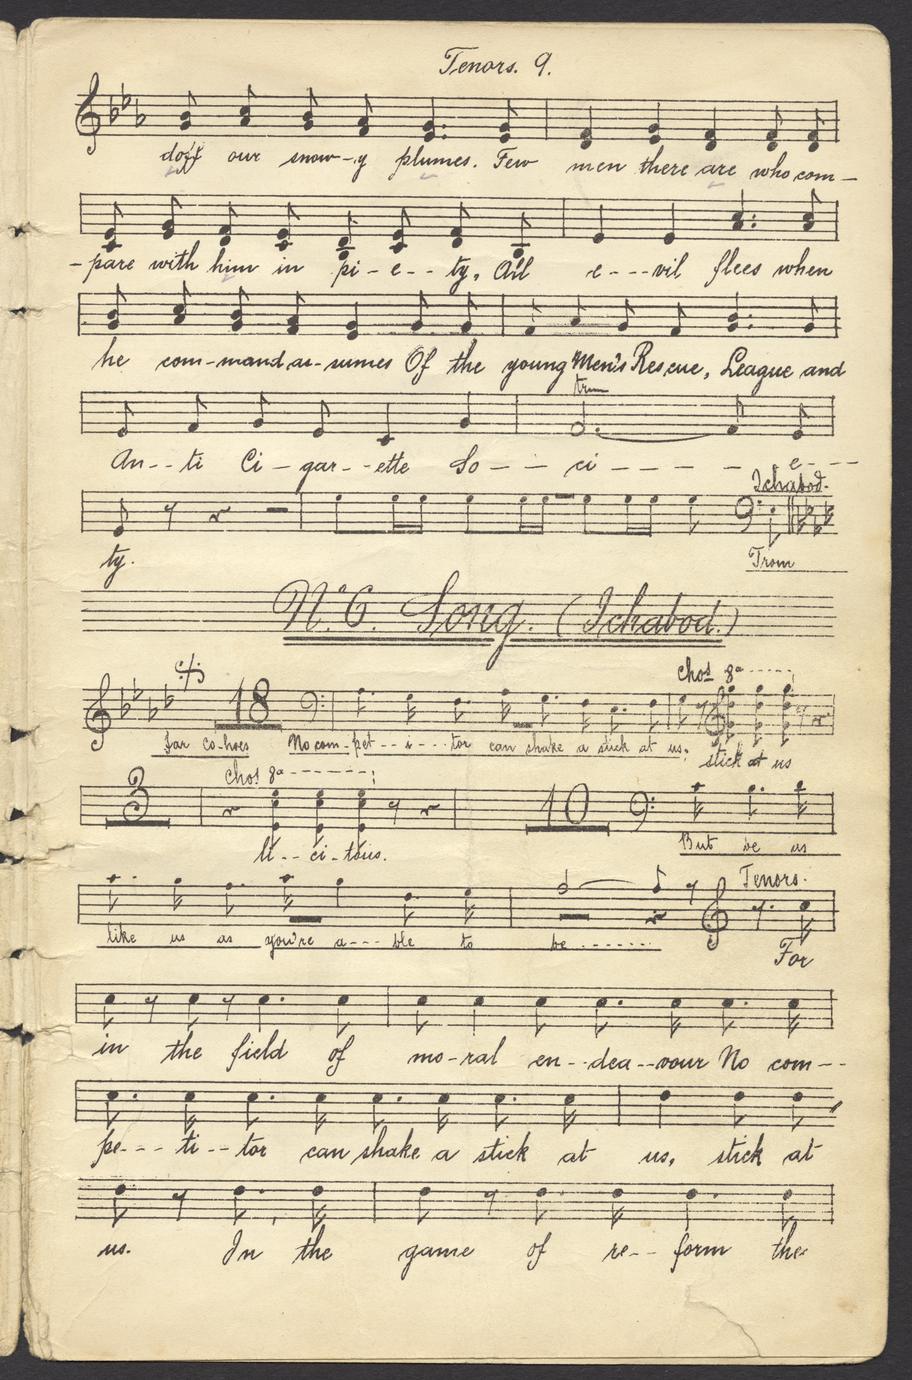 Tenors. 9.
doff our snow--y plumes. Few men there are who com-
-pare with him in pi-e--ty, All e---vil flees when
he com-mand as-sumes Of the young Men's Rescue, League and
trm
An--ti Ci-gar--ette So--- ci - - - - - e---
Ichabod.
ty. From
No. 6. Song. (Ichabod.)
18 chos 8a-----
far co-hoes No com-pet--i---tor can shake a stick at us. stick at us
3 chos 8a------- 10
li--ci-tous. But be us
Tenors.
like us as you're a---ble to be ------- For
in the field of mo-ral en--dea--vour No com--
pe---ti--tor can shake a stick at us, stick at
us. In the game of re--form the